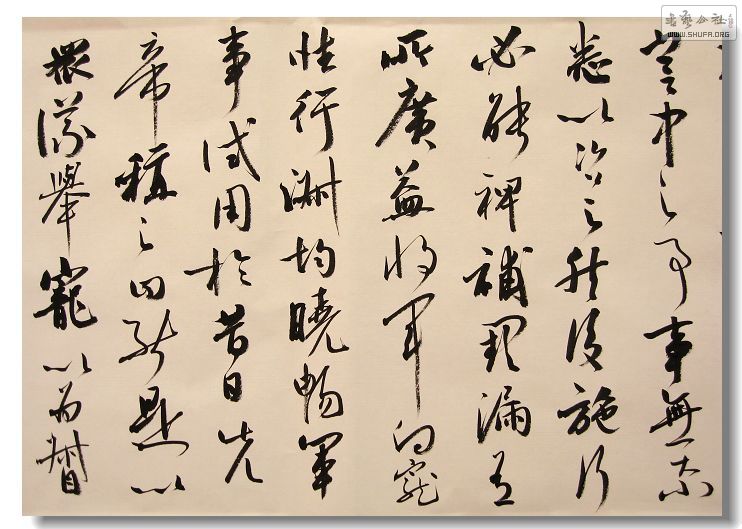 書藝公社
WWW.SHUFA.ORG
宮中之事事無大小
悉以咨之然後施行
必能裨補闕漏有
所廣益將軍向寵
性行淑均曉暢軍
事試用於昔日先
帝稱之曰能是以
眾議舉寵以為督